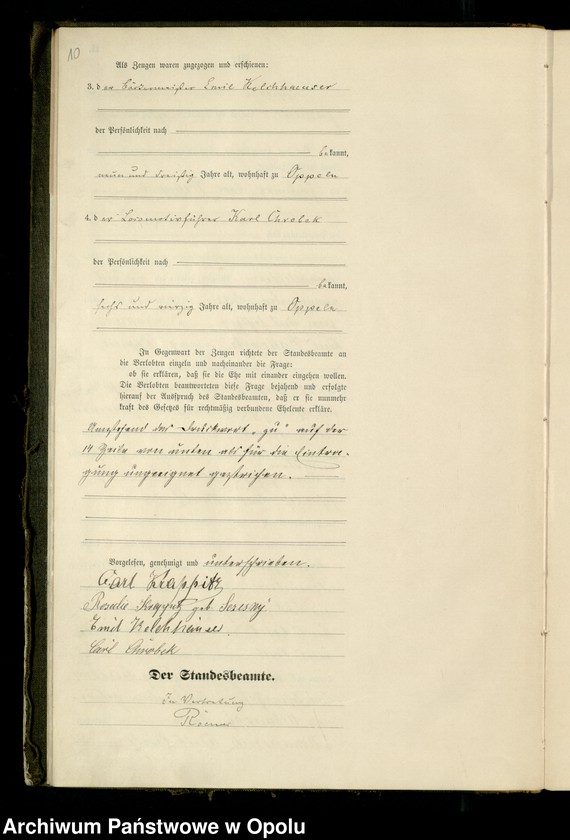 10
Als Zeugen waren zugezogen und erschienen:
3. der Bäckermeister Emil Kelchhaeuser
der Persönlichkeit nach
bekannt,
neun und dreißig Jahre alt, wohnhaft zu Oppeln
4. der Locomotivführer Karl Chrobok
der Persönlichkeit nach
bekannt,
sechs und vierzig Jahre alt, wohnhaft zu Oppeln
In Gegenwart der Zeugen richtete der Standesbeamte an
die Verlobten einzeln und nacheinander die Frage:
ob sie erklären, daß sie die Ehe mit einander eingehen wollen.
Die Verlobten beantworteten diese Frage bejahend und erfolgte
hierauf der Ausspruch des Standesbeamten, daß er sie nunmehr
kraft des Gesetzes für rechtmäßig verbundene Eheleute erkläre.
Umstehend das Druckwort „zu" auf der
14 Zeile von unten als für die Eintra-
gung ungeeignet gestrichen.
Vorgelesen, genehmigt und unterschrieben.
Carl
geb.
Emil Kelchhäuser
Carl Chrobok
Der Standesbeamte.
In Vertretung
Archiwum Państwowe w Opolu